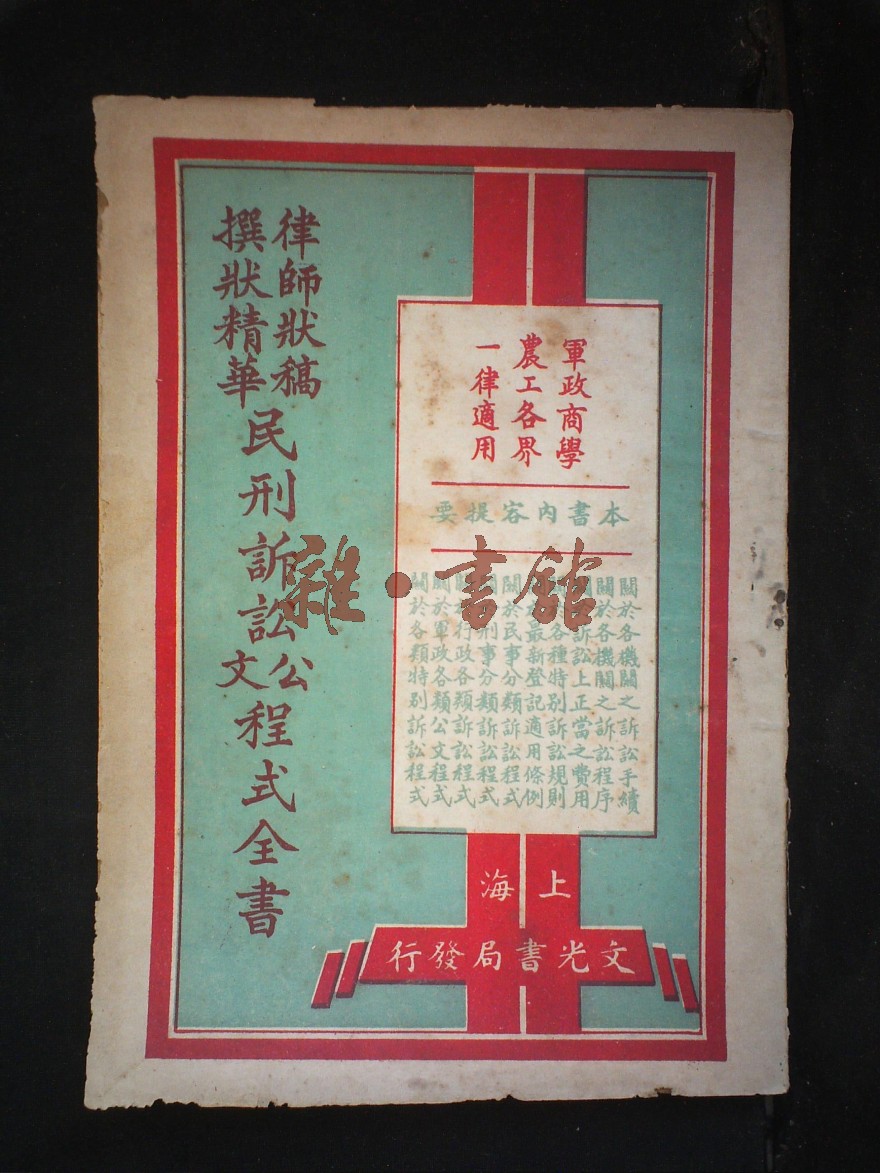 律師狀稿
撰狀精華
民刑訴訟公文程式全書
軍政商學
農工各界
一律適用
本書內容提要
關於各機關之訴訟手續
關於各機關之訴訟程序
關於訴訟上正當之費用
關於各種特別訴訟規則
關於最新登記適用條例
關於民事分類訴訟程式
關於刑事分類訴訟程式
關於行政各類訴訟程式
關於軍政各類公文程式
關於各類特別訴訟程式
上海
文光書局發行
雜·書館